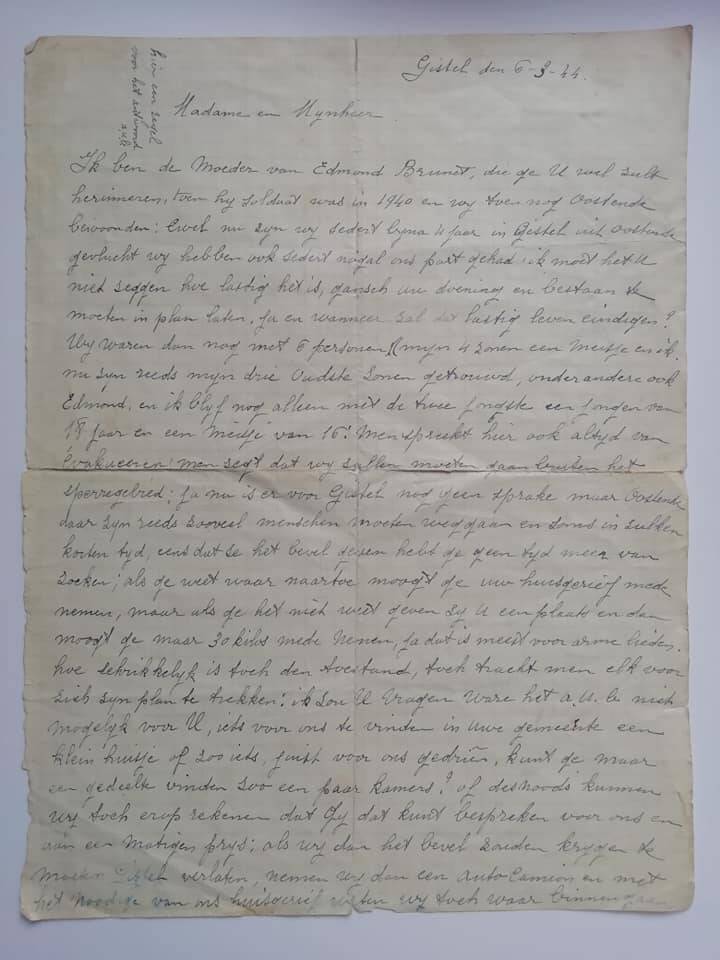 hier een zegel
voor het antwoord
a.u.b
Gistel den 6-3-44.
Madame en Mynheer
Ik ben de Moeder van Edmond Brunet, die ge U wel zult
herinneren, toen hy Soldaat was in 1940 en wy toen nog Oostende
bewoonden: Ewel nu zyn wy sedert byna 4 jaar in Gistel uit Oostende
gevlucht wy hebben ook sedert nogal ons part gehad ik moet het U
niet zeggen hoe lastig het is, gansch uw doening en bestaan te
moeten in plan laten, ja en wanneer zal dat lastig leven eindegen?
Wy waren dan nog met 6 personen, mijn 4 zonen een Meisje en ik.
nu zyn reeds mijn drie Oudste zonen getrouwd, onder andere ook
Edmond, en ik blyf nog alleen met de twee jongste een jongen van
18 jaar en een Meisje van 16! Men spreekt hier ook altyd van
Evakueeren! men zegt dat wy zullen moeten gaan buiten het
sperregebied; ja nu is er voor Gistel nog geen sprake maar Oostende
daar zyn reeds zooveel menschen moeten weggaan en soms in zulken
korten tyd, eens dat ze het bevel geven hebt ge geen tyd meer van
zoeken; als ge weet waar naartoe moogt ge uw huisgerief mede
nemen, maar als ge het niet weet geven zy U een plaats en dan
moogt ge maar 30 kilos mede Nemen, ja dat is meest voor arme lieden.
hoe schrikkelyk is toch den toestand, toch tracht men elk voor
zich zyn plan te trekken! ik zou U Vragen ware het a.u.b. niet
mogelyk voor U, iets voor ons te vinden in uwe gemeente een
klein huisje of zoo iets, juist voor ons gedriën, kunt ge maar
een gedeelte vinden zoo een paar kamers? of desnoods kunnen
wy toch erop rekenen dat Gy dat kunt bespreken voor ons en
aan een Matigen prys; als wy dan het bevel zouden krygen te
moeten Gistel verlaten, nemen wy dan een auto Camion en met
het Noodige van ons huisgerief weten wy toch waar binnen gaan